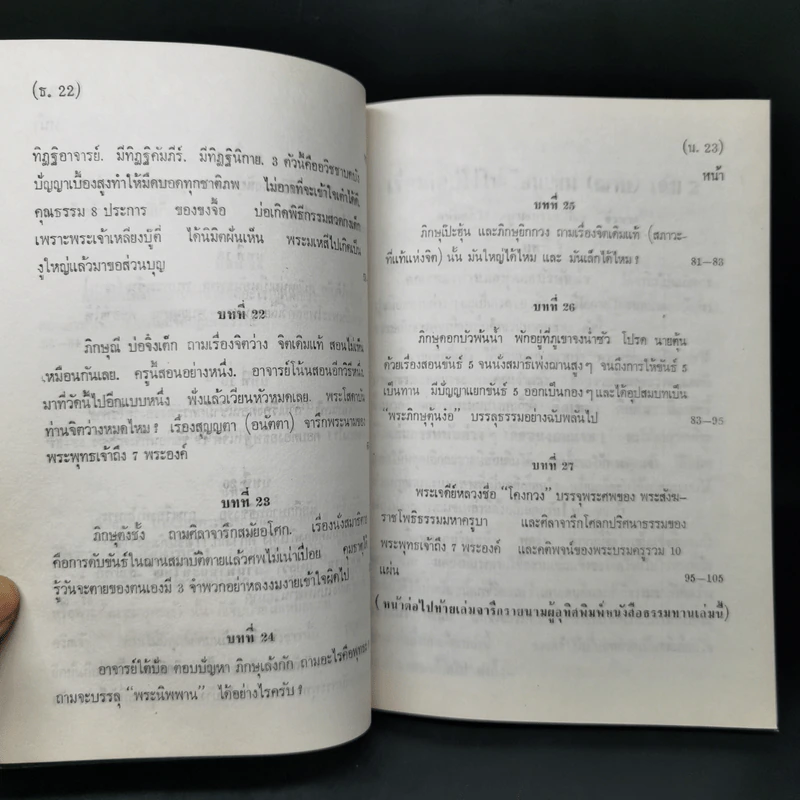 (ธ. 22)
ทิฏฐิอาจารย์. มีทิฏฐิคัมภีร์. มีทิฏฐินิกาย. 3 ตัวนี้คืออวิชชาบดบัง
ปัญญาเบื้องสูงทำให้มืดบอดทุกชาติภพ ไม่อาจที่จะเข้าใจเต๋าได้ดี.
คุณธรรม 8 ประการ ของขงจื้อ บ่อเกิดพิธีกรรมสวดกงเต็ก
เพราะพระเจ้าเหลียงบู้ตี่ ได้นิมิตฝันเห็น พระมเหสีไปเกิดเป็น
งูใหญ่แล้วมาขอส่วนบุญ
บทที่ 22
ภิกษุณี บ่อจิ้งเต็ก ถามเรื่องจิตว่าง จิตเดิมแท้ สอนไม่เห็น
เหมือนกันเลย. ครูนี้สอนอย่างหนึ่ง. อาจารย์โน้นสอนอีกวิธีหนึ่ง.
มาที่วัดนี้ไปอีกแบบหนึ่ง ฟังแล้วเวียนหัวหมดเลย. พระโสดาบัน
ท่านจิตว่างหมดไหม ? เรื่องสุญญตา (อนัตตา) จารึกพระนามของ
พระพุทธเจ้าถึง 7 พระองค์
บทที่ 23
ภิกษุตังชั้ง ถามศิลาจารึกสมัยอโศก. เรื่องนั่งสมาธิตาย
คือการดับขันธ์ในฌานสมาบัติตายแล้วศพไม่เน่าเปื่อย คุมธาตุได้
รู้วันจะตายของตนเองมี 3 จำพวกอย่าหลงงมงายเข้าใจผิดไป
บทที่ 24
อาจารย์ไต้บ๊อ ตอบปัญหา ภิกษุเล้งกัก ถามอะไรคือพุทธะ ?
ถามจะบรรลุ “พระนิพพาน” ได้อย่างไรครับ ?
(น. 23)
หน้า
บทที่ 25
ภิกษุเป๊ะฮุ้น และภิกษุฮึกกวง ถามเรื่องจิตเดิมแท้ (สภาวะ-
ที่แท้แห่งจิต) นั้น มันใหญ่ได้ไหม และ มันเล็กได้ไหม ? 81—83
บทที่ 26
ภิกษุดอกบัวพ้นน้ำ พักอยู่ที่ภูเขาจงน่ำซัว โปรด นายตุ้น
ด้วยเรื่องสอนขันธ์ 5 จนนั่งสมาธิเพ่งฌานสูงๆ จนถึงการให้ขันธ์ 5
เป็นทาน มีปัญญาแยกขันธ์ 5 ออกเป็นกองๆ และได้อุปสมบทเป็น
“พระภิกษุตุ้นง้อ” บรรลุธรรมอย่างฉับพลันไป 83—95
บทที่ 27
พระเจดีย์หลวงชื่อ “โคงกวง” บรรจุพระศพของ พระสังฆ-
ราชโพธิธรรมมหาครูบา และศิลาจารึกโศลกปริศนาธรรมของ
พระพุทธเจ้าถึง 7 พระองค์ และคติพจน์ของพระบรมครูรวม 10
แผ่น 95—105
( หน้าต่อไปท้ายเล่มจารึกรายนามผู้อุทิศพิมพ์หนังสือธรรมทานเล่มนี้)